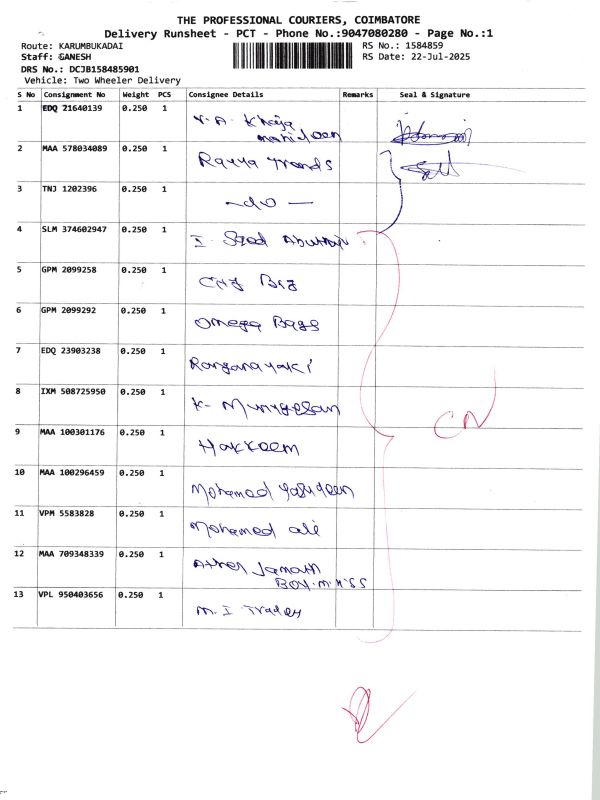 THE PROFESSIONAL COURIERS, COIMBATORE
Delivery Runsheet - PCT - Phone No.:9047080280 - Page No.:1
Route: KARUMBUKADAI RS No.: 1584859
Staff: GANESH RS Date: 22-Jul-2025
DRS No.: DCJB158485901
Vehicle: Two Wheeler Delivery
S No Consignment No Weight PCS Consignee Details Remarks Seal & Signature
1 EDQ 21640139 0.250 1 V. A. Khaja
2 MAA 578034089 0.250 1 Rayya Trends
3 TNJ 1202396 0.250 1 -do-
4 SLM 374602947 0.250 1 I. Syed
5 GPM 2099258 0.250 1
6 GPM 2099292 0.250 1 Omega Bags
7 EDQ 23903238 0.250 1 Ranganayaki
8 IXM 508725950 0.250 1 K. Murugesan
9 MAA 100301176 0.250 1 Hakkeem
CN
10 MAA 100296459 0.250 1 Mohamed
11 VPM 5583828 0.250 1 Mohamed ali
12 MAA 709348339 0.250 1 Jamath
13 VPL 950403656 0.250 1 M. I Trades